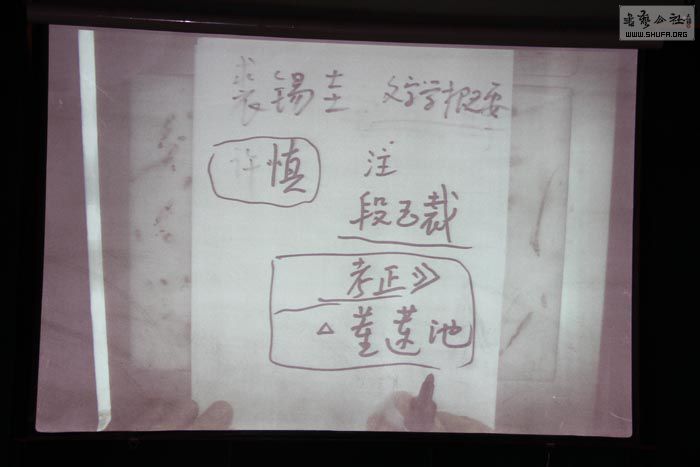 书艺公社
WWW.SHUFA.ORG
裘锡圭 文字学概要
许慎 注
段玉裁
考正》
△董莲池